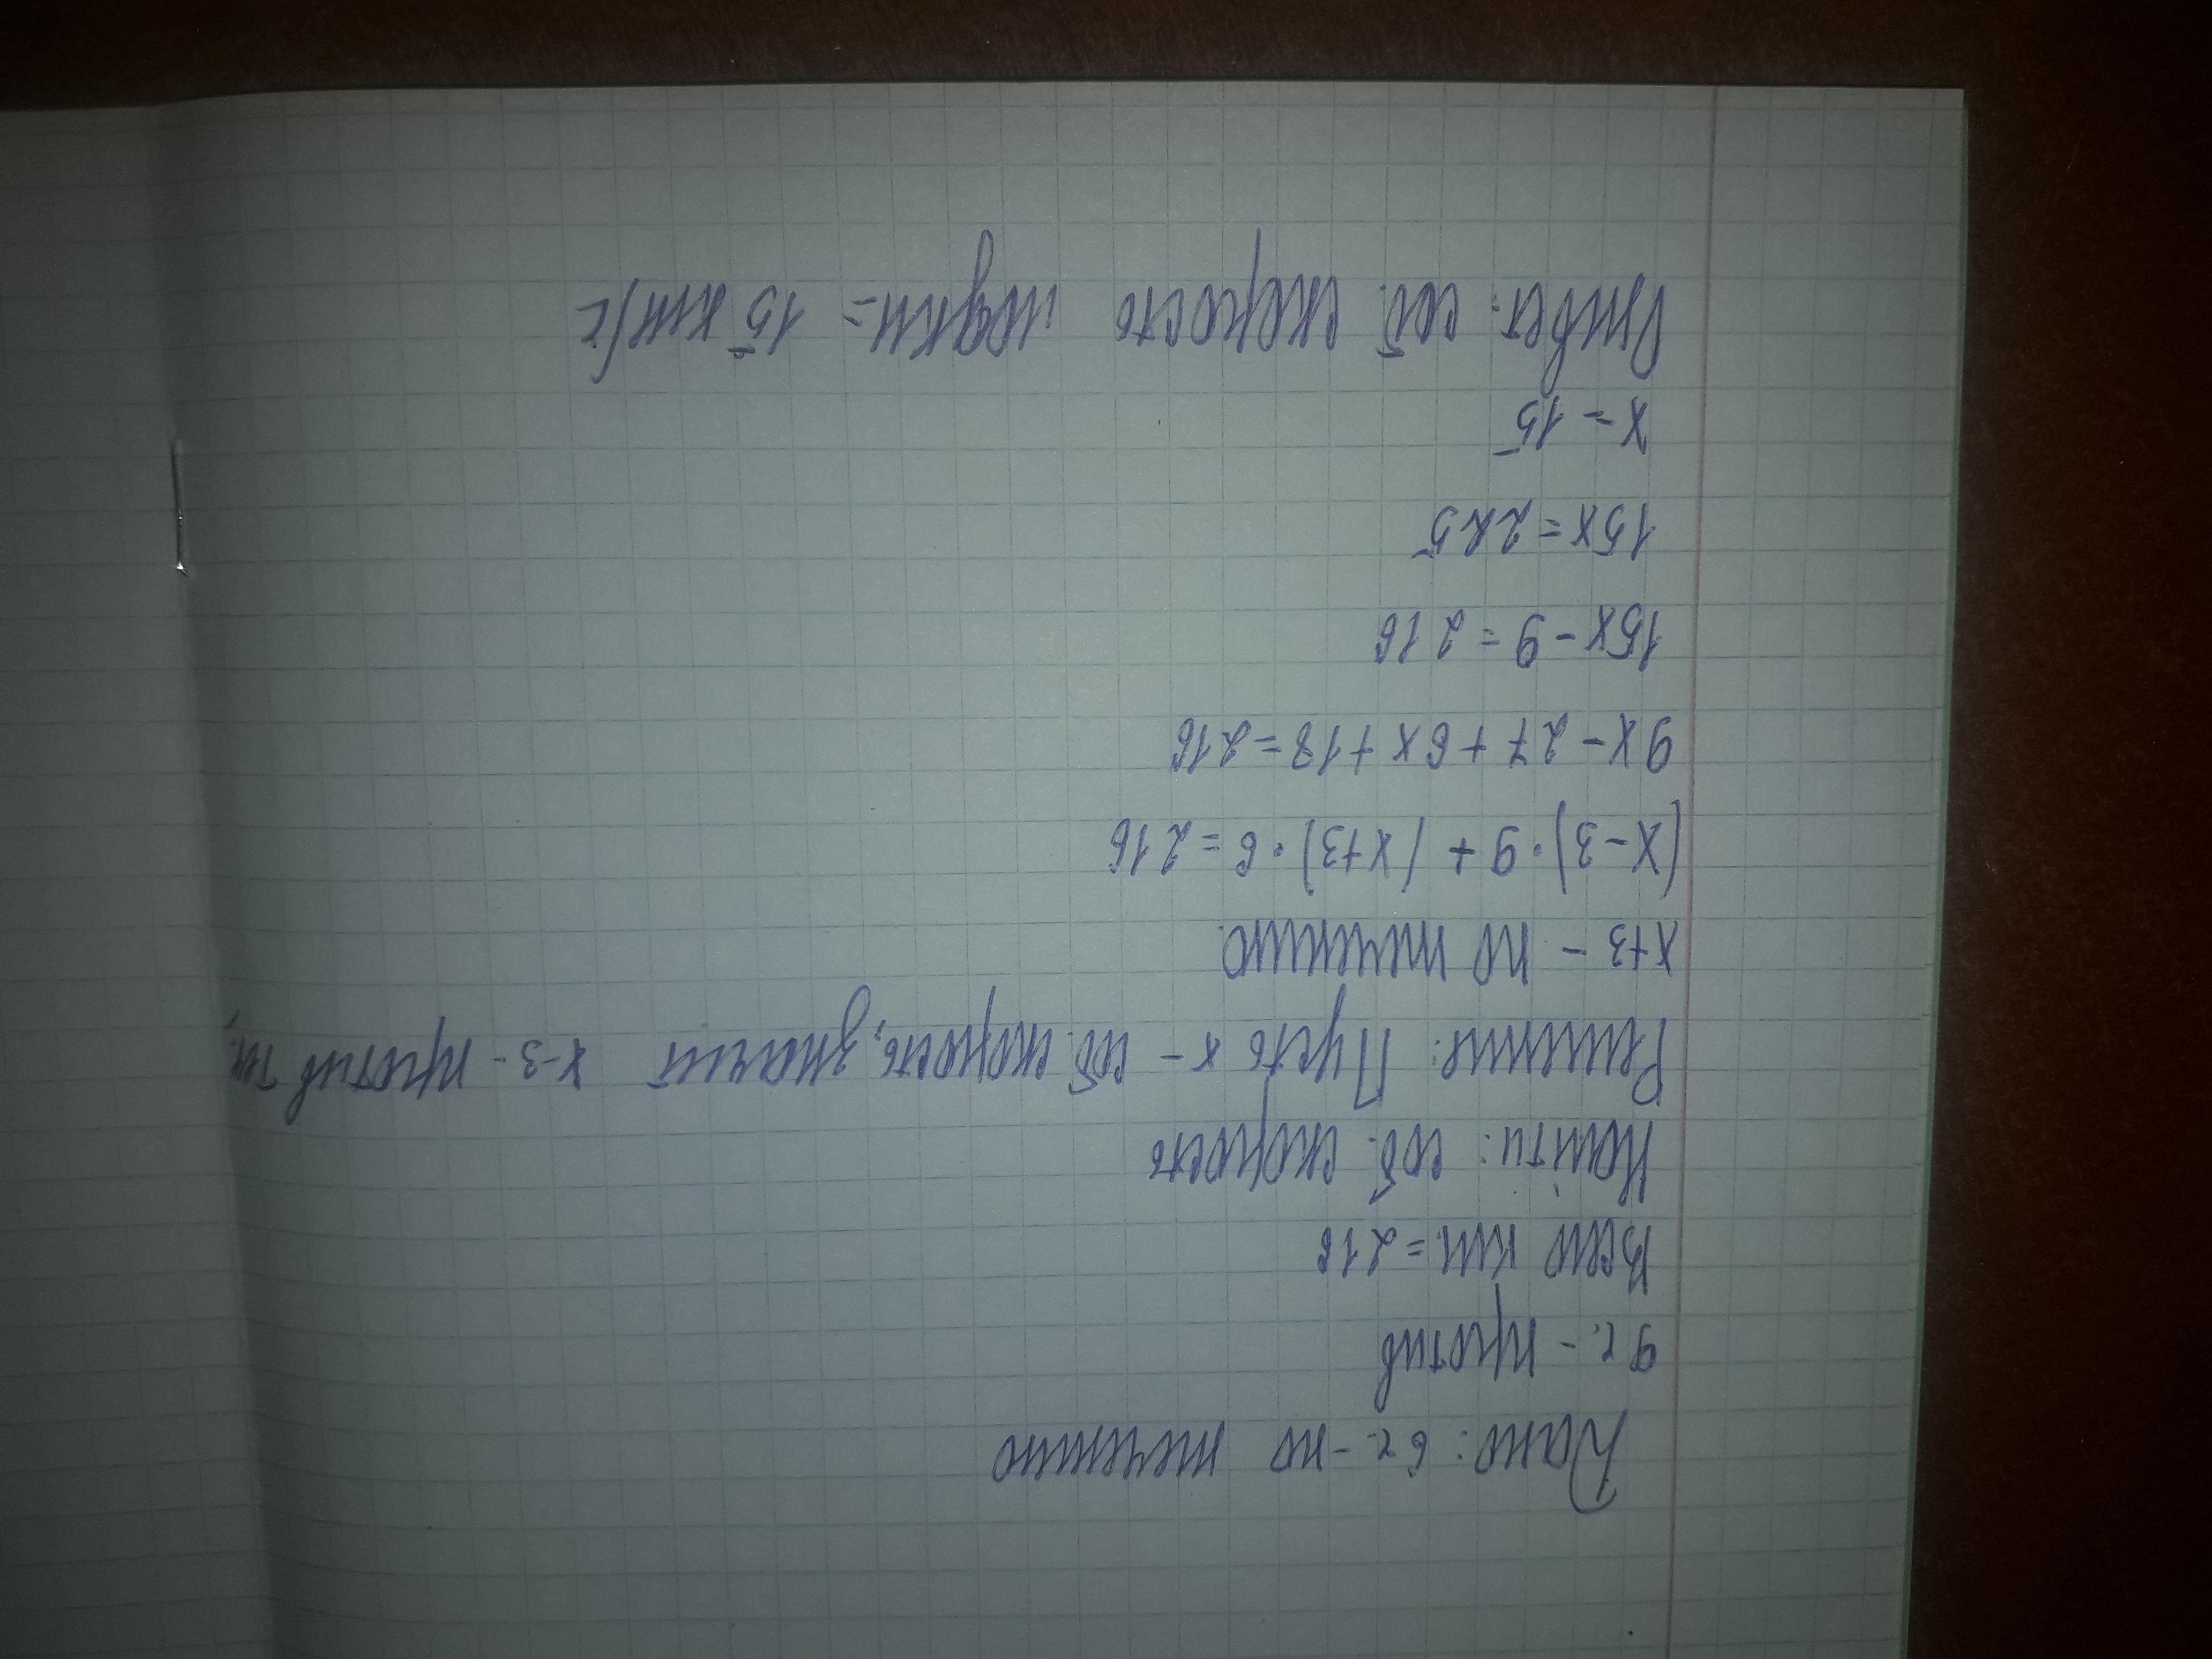 Дано: 6ч.-по течению
9ч. - против
Всего км.=216
Найти: соб. скорость
Решение: Пусть x - соб. скорость, значит x-3- против теч.,
x+3 - по течению.
(x-3)·9+(x+3)·6=216
9x-27+6x+18=216
15x-9=216
15x=225
x=15
Ответ: соб. скорость лодки= 15 км/ч